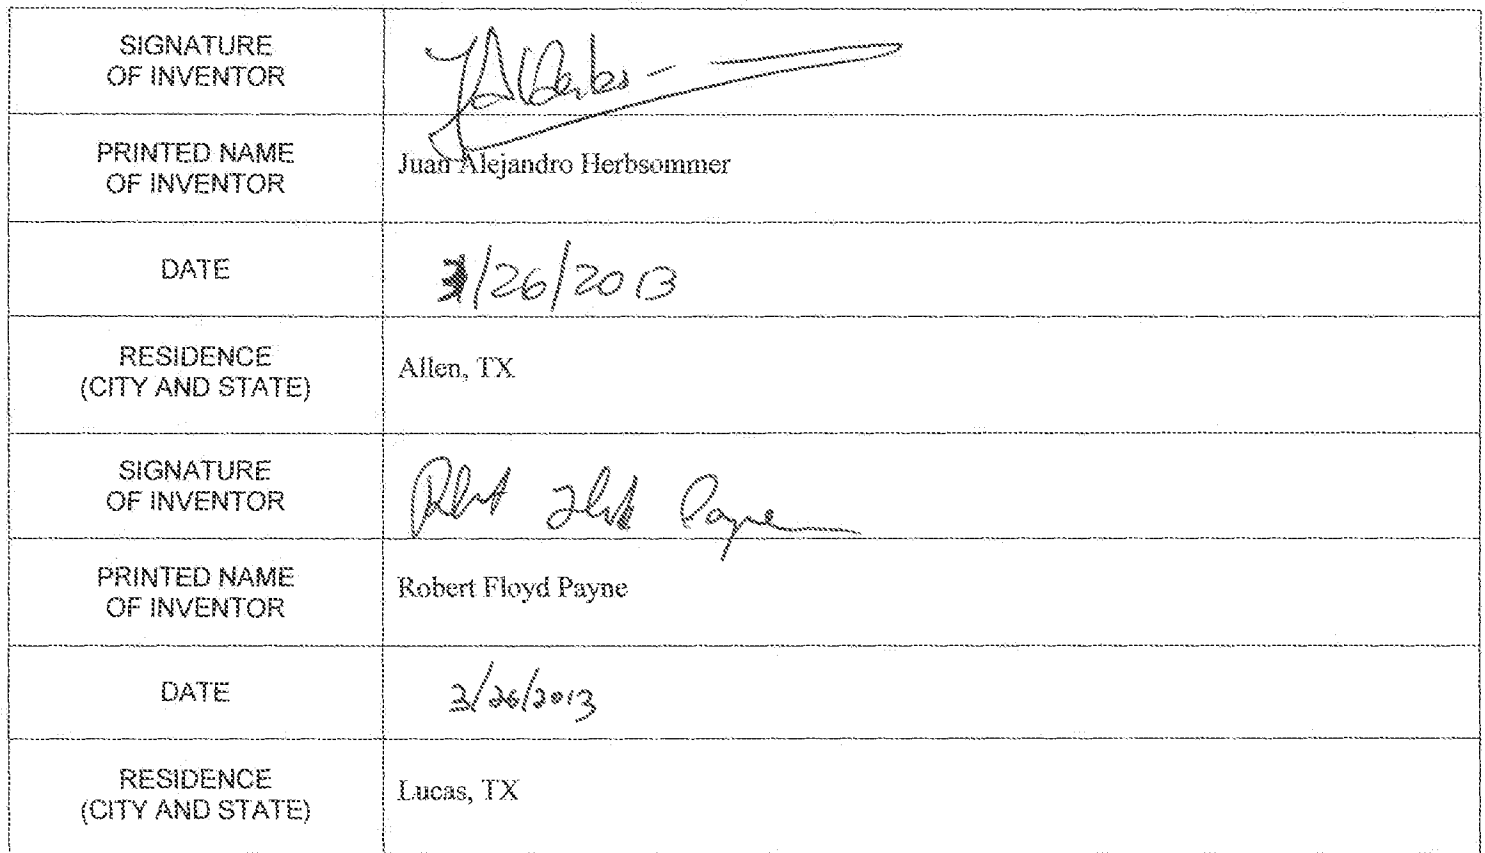 SIGNATURE
OF INVENTOR
PRINTED NAME
OF INVENTOR
Juan Alejandro Herbsommer
DATE
3/26/2013
RESIDENCE
(CITY AND STATE)
Allen, TX
SIGNATURE
OF INVENTOR
Robert Floyd Payne
PRINTED NAME
OF INVENTOR
Robert Floyd Payne
DATE
3/26/2013
RESIDENCE
(CITY AND STATE)
Lucas, TX